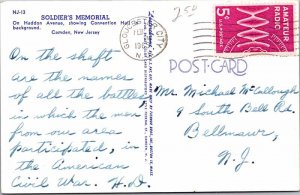 NJ-13
SOLDIER'S MEMORIAL
On Haddon Avenue, showing Convention Hall in
background.
Camden, New Jersey
25¢
5¢
AMATEUR
RADIO
POST CARD
On the shaft
are the names
of all the battles
in which the men
from our area
participated, in
the American
Civil War. H.D.
Mr. Michael McCullough
9 South Bell Rd.
Bellmawr,
N.J.